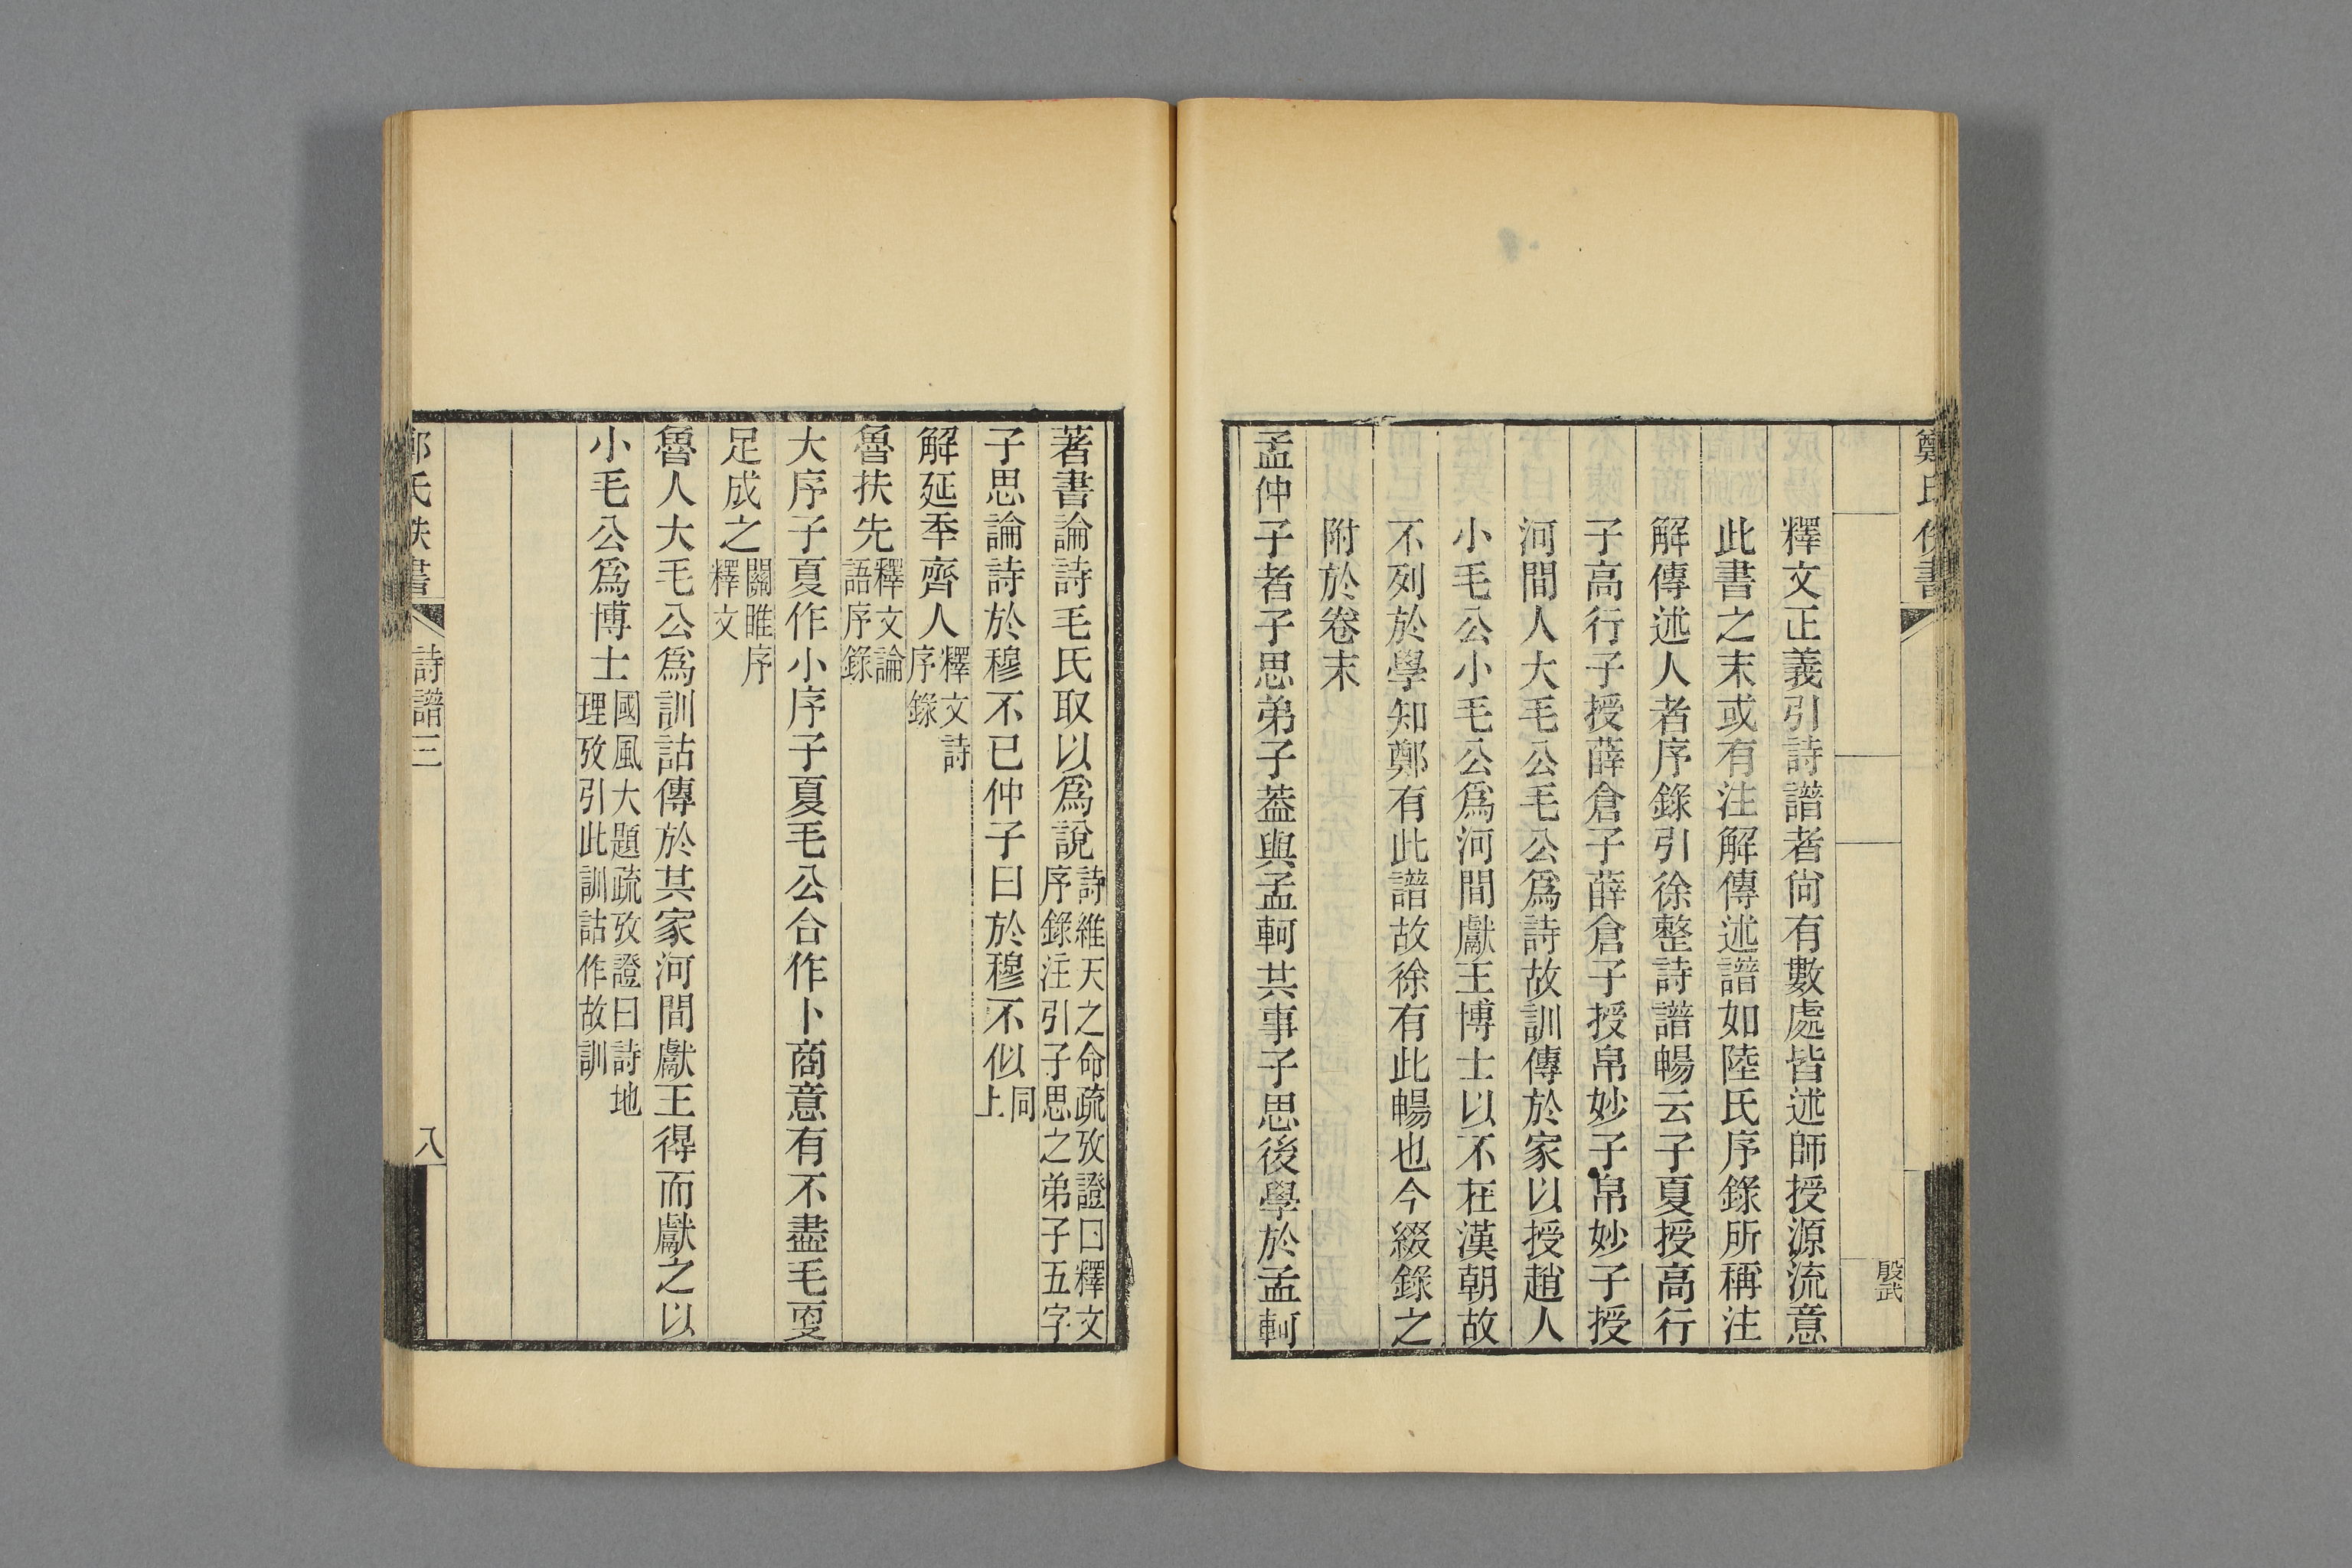 殷武
釋文正義引詩譜者尙有數處皆述師授源流意
此書之末或有注解傳述譜如陸氏序錄所稱注
解傳述人者序錄引徐整詩譜暢云子夏授高行
子高行子授薛倉子薛倉子授帛妙子帛妙子授
河間人大毛公毛公爲詩故訓傳於家以授趙人
小毛公小毛公爲河間獻王博士以不在漢朝故
不列於學知鄭有此譜故徐有此暢也今綴錄之
附於卷末
孟仲子者子思弟子葢與孟軻共事子思後學於孟軻
著書論詩毛氏取以爲說詩維天之命疏攷證曰釋文
序錄注引子思之弟子五字
子思論詩於穆不已仲子曰於穆不似同
上
解延秊齊人釋文詩
序錄
魯扶先釋文論
語序錄
大序子夏作小序子夏毛公合作卜商意有不盡毛更
足成之關雎序
釋文
魯人大毛公爲訓詁傳於其家河間獻王得而獻之以
小毛公爲博士國風大題疏攷證曰詩地
理攷引此訓詁作故訓
詩譜三
八